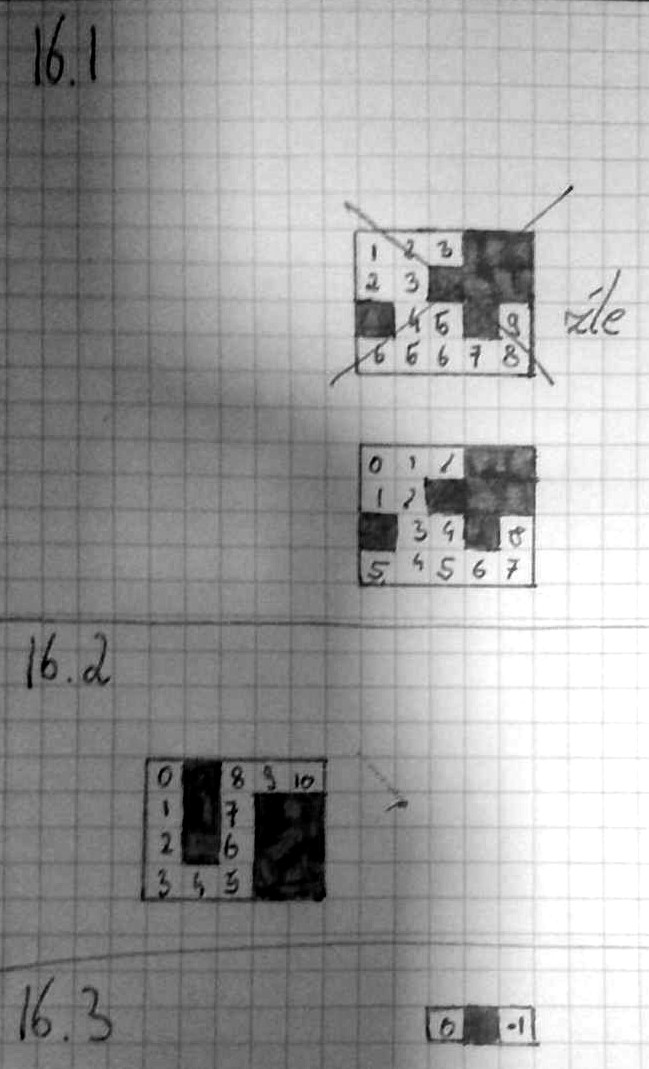 16.1
1 2 3
2 3
4 5 9
5 5 6 7 8
źle
0 1 2
1 2
3 4 8
5 4 5 6 7
16.2
0 8 9 10
1 7
2 6
3 4 5
16.3
0 -1